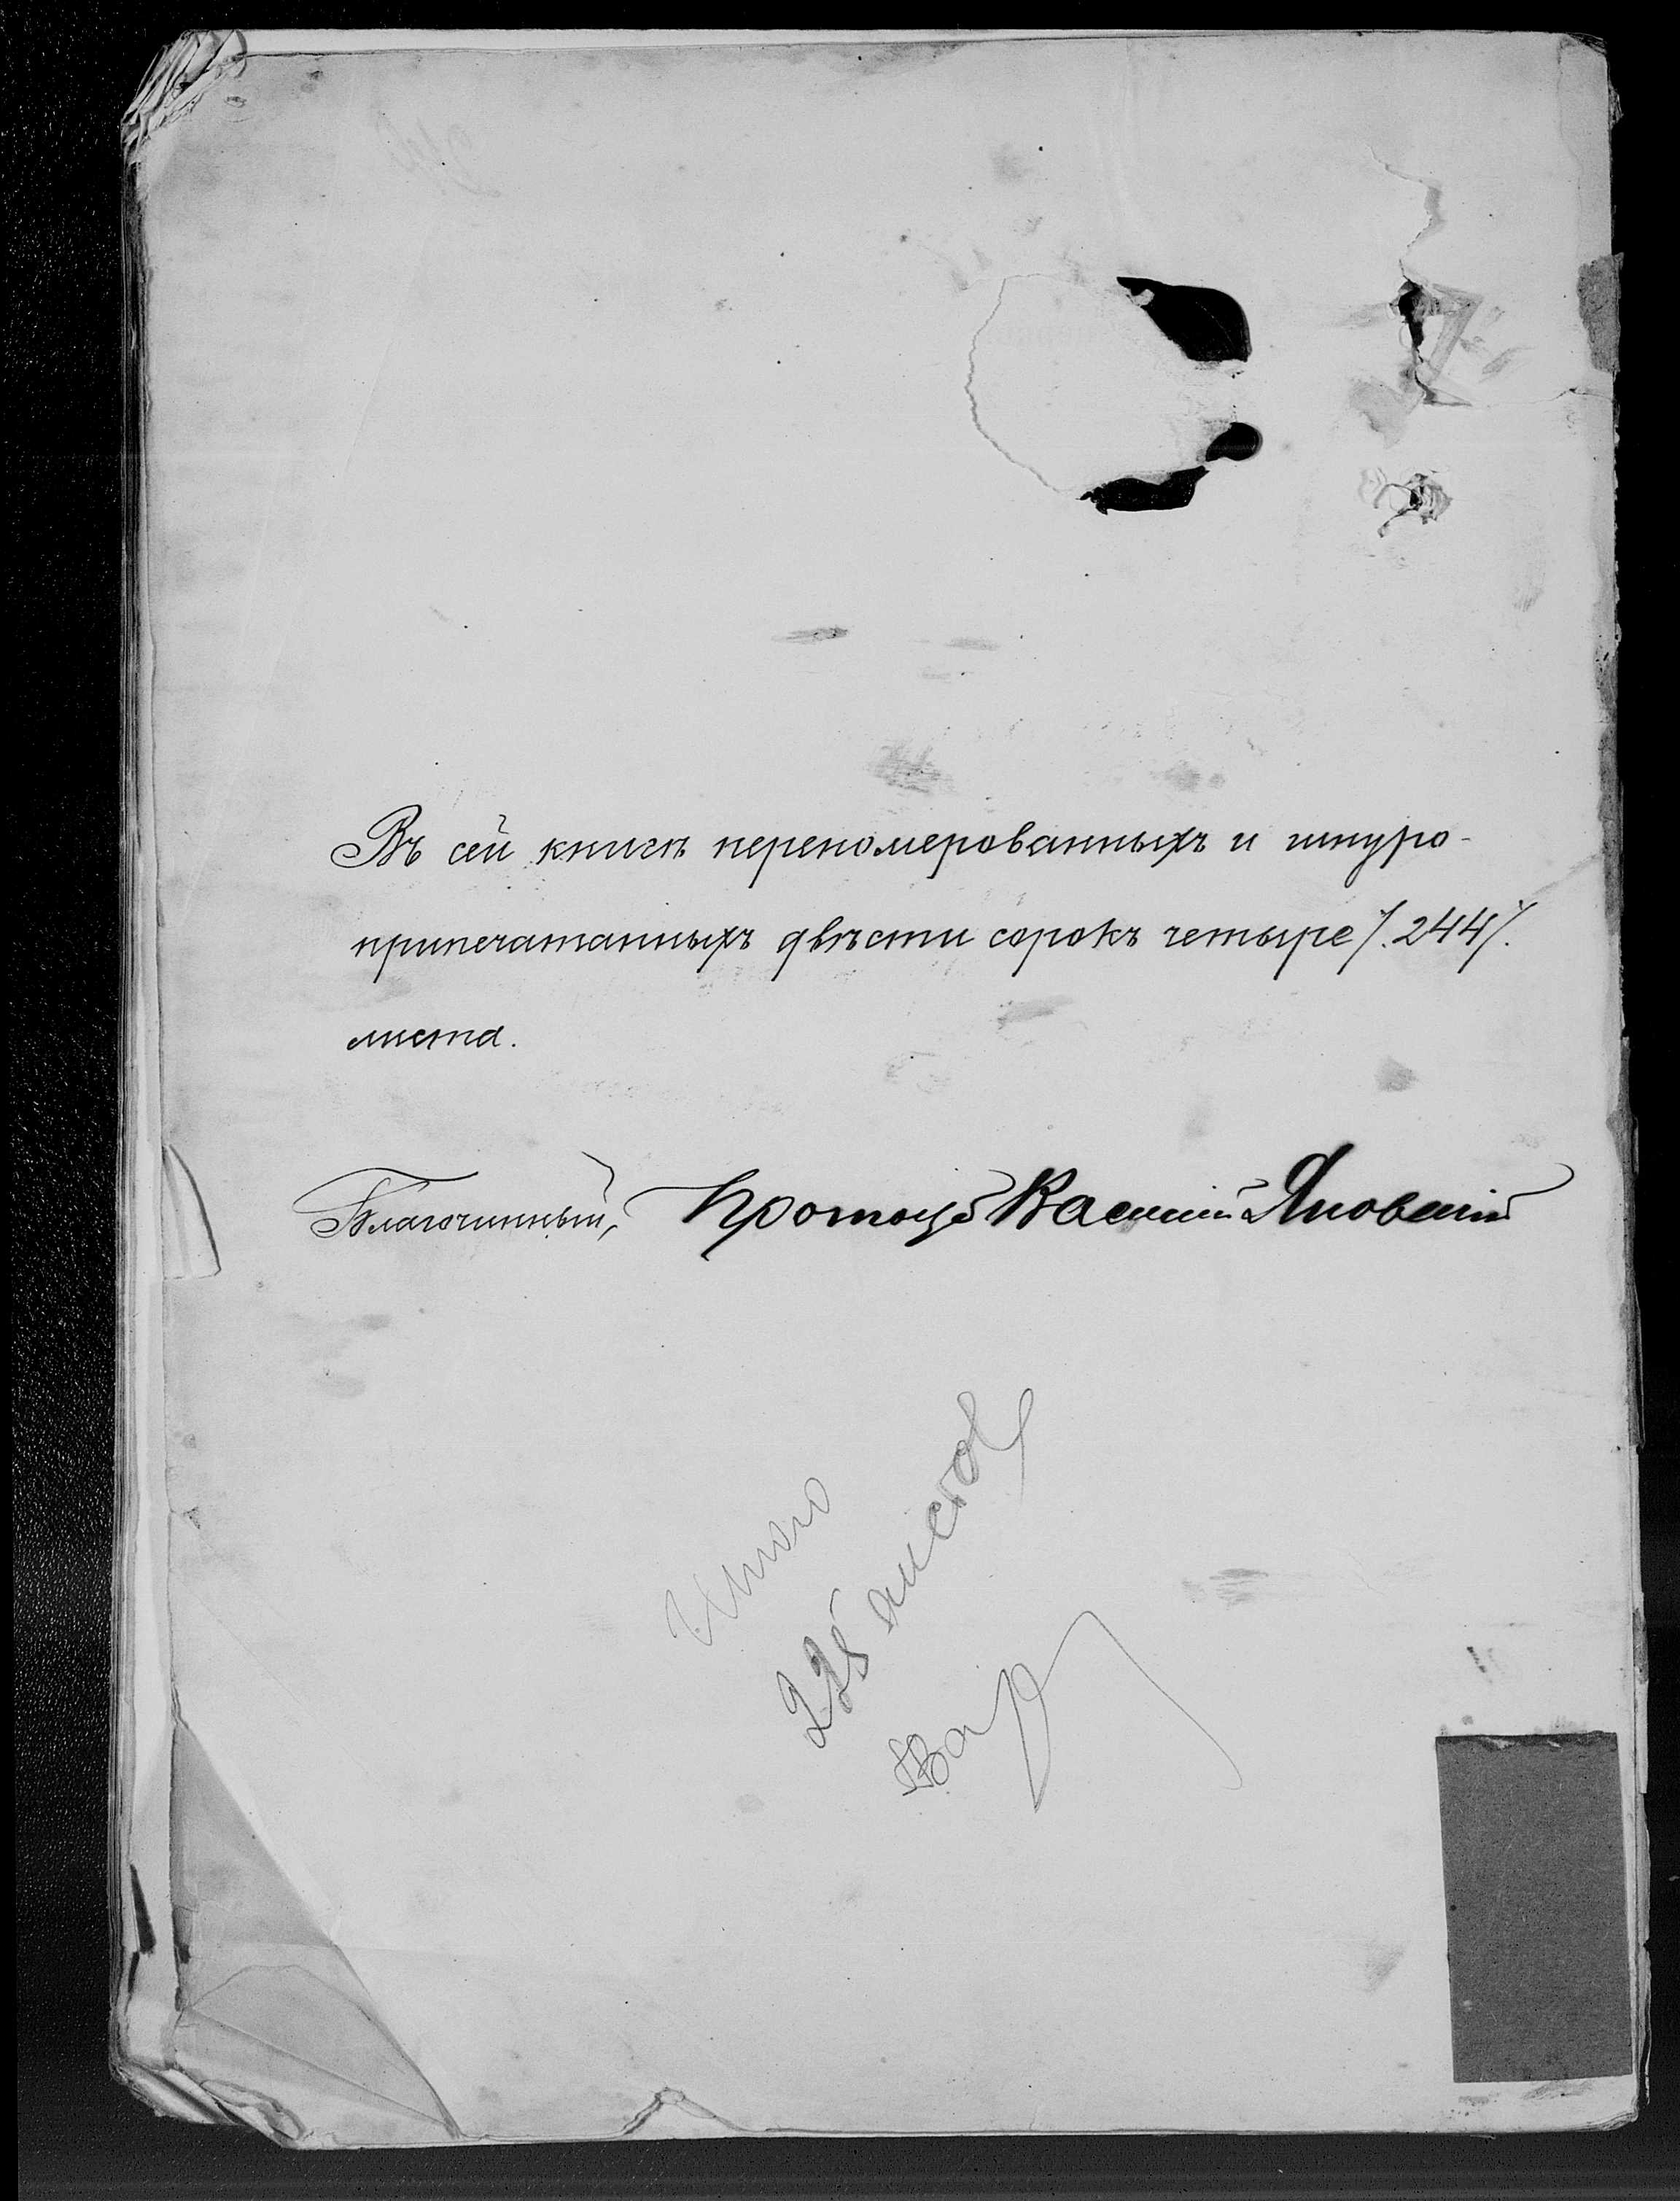 Въ сей книгѣ перепомерованныхъ и шнуро-
припечатанныхъ двѣсти сорокъ четыре /.244/.
листа.
Благочинный, Протоіер Василій Яновскій
Итого
225 листов